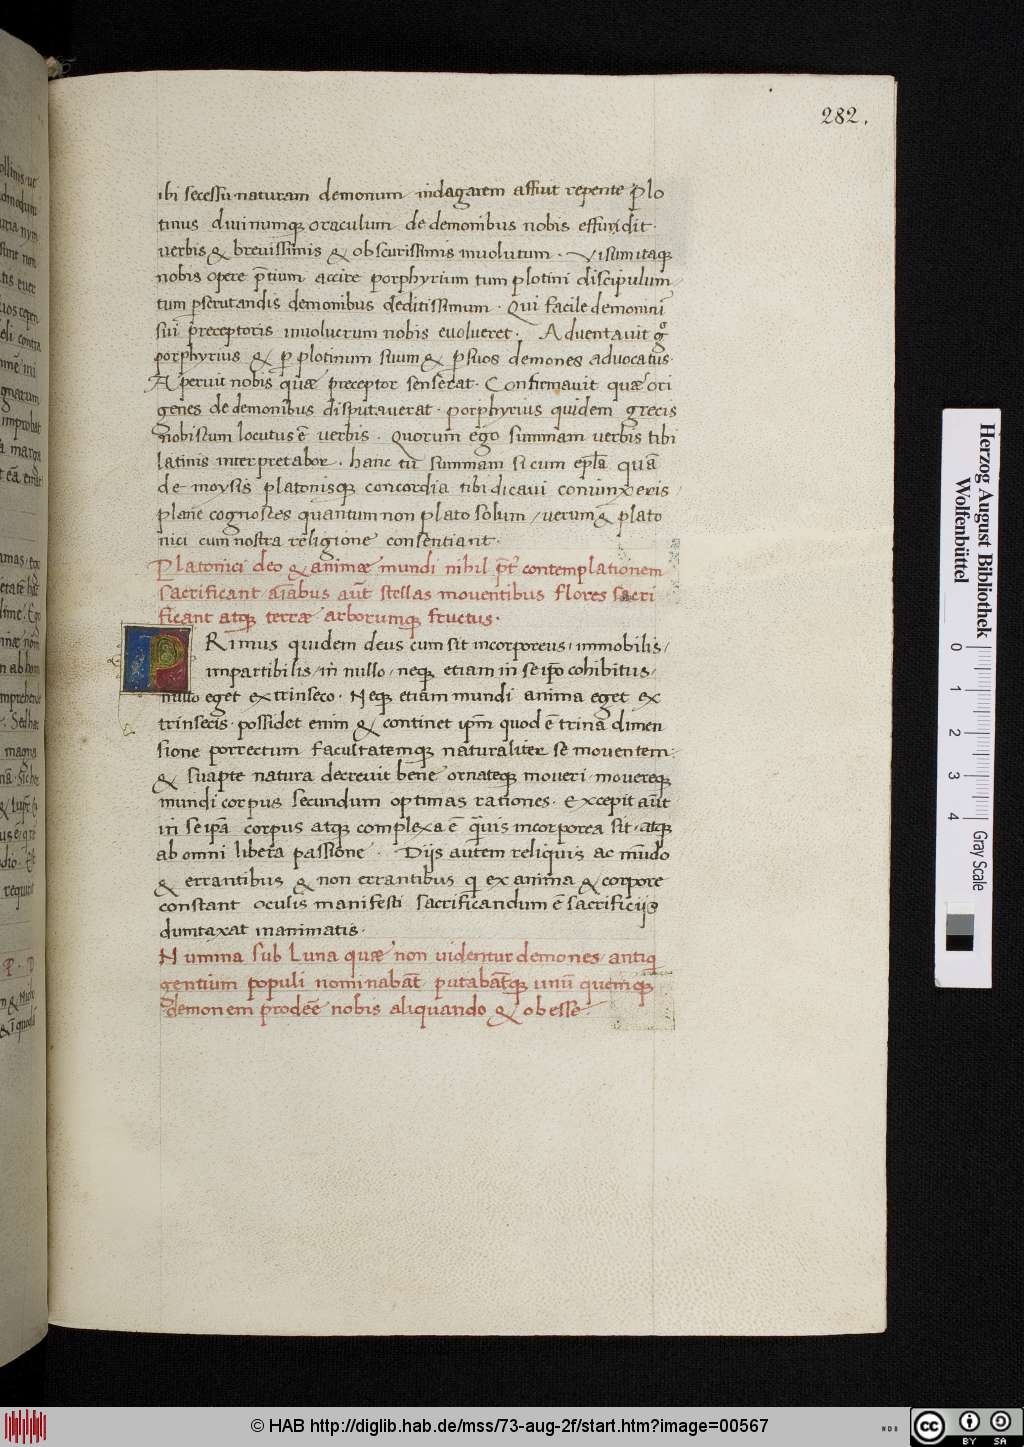 282.
ibi secessu naturam demonum indagarem affuit repente plo
tinus diuinumq; oraculum de demonibus nobis effundit.
uerbis & breuissimis & obscurissimis inuolutum. Visum itaq;
nobis opere p̄tium accire porphyrium tum plotini discipulum
tum pscrutandis demonibus deditissimum. Qui facile demonium
sui preceptoris inuolucrum nobis euolueret. Aduentauit
porphyrius & p plotinum suum & p suos demones aduocatus.
Aperuit nobis quæ preceptor senserat. Confirmauit quæ ori
genes de demonibus disputauerat. porphyrius quidem grecis
nobiscum locutus ē uerbis. Quorum ego summam uerbis tibi
latinis interpretabor. hanc tū summam si cum ep̄la quā
de moysis platonisq; concordia tibi dicaui coniunxeris
plane cognosces quantum non plato solum / uerum & plato
nici cum nostra religione consentiant.
Platonici deo & animæ mundi nihil p̄t contemplationem
sacrificant aīabus aūt stellas mouentibus flores sacri
ficant atq; terræ arborumq; fructus.
PRimus quidem deus cum sit incorporeus / immobilis /
impartibilis / in nullo / neq; etiam in se ipo cohibitus /
nullo eget extrinseco. Neq; etiam mundi anima eget ex
trinsecis. possidet enim & continet ip̄m quod ē trina dimen
sione porrectum facultatemq; naturaliter se mouentem:
& suapte natura decreuit bene ornateq; moueri / mouereq;
mundi corpus secundum optimas rationes. Excepit aūt
in se ip̄a corpus atq; complexa ē q̄uis incorporea sit. atq;
ab omni libera passione. Diis autem reliquis ac mūdo
& errantibus & non errantibus q ex anima & corpore
constant oculis manifesti sacrificandum ē sacrificiis
dumtaxat inanimatis.
Numina sub Luna quæ non uidentur demones antiq
gentium populi nominabāt putabātq; unū quemq;
demonem prodeē nobis aliquando & obesse.
Herzog August Bibliothek
Wolfenbüttel
0 1 2 3 4
Gray Scale
© HAB http://diglib.hab.de/mss/73-aug-2f/start.htm?image=00567
WDB
cc BY SA